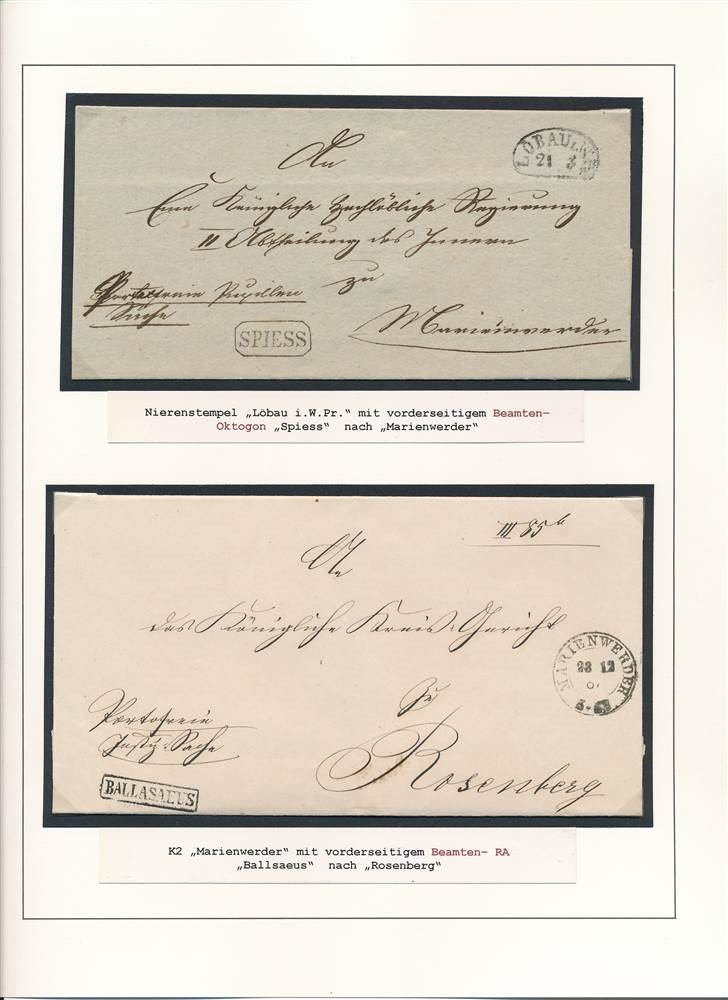 LÖBAU i.W.PR.
21 3
An
Eine Königliche Hochlöbliche Regierung
II Abtheilung des Innern
zu
Portofreie Pupillen
Sache
SPIESS
Marienwerder
Nierenstempel „Löbau i.W.Pr.“ mit vorderseitigem Beamten-
Oktogon „Spiess“ nach „Marienwerder“
III 85 b
An
das Königliche Kreis-Gericht
MARIENWERDER
23 12
Zu
Portofreie
Justiz-Sache
Rosenberg
BALLASAEUS
K2 „Marienwerder“ mit vorderseitigem Beamten- RA
„Ballsaeus“ nach „Rosenberg“